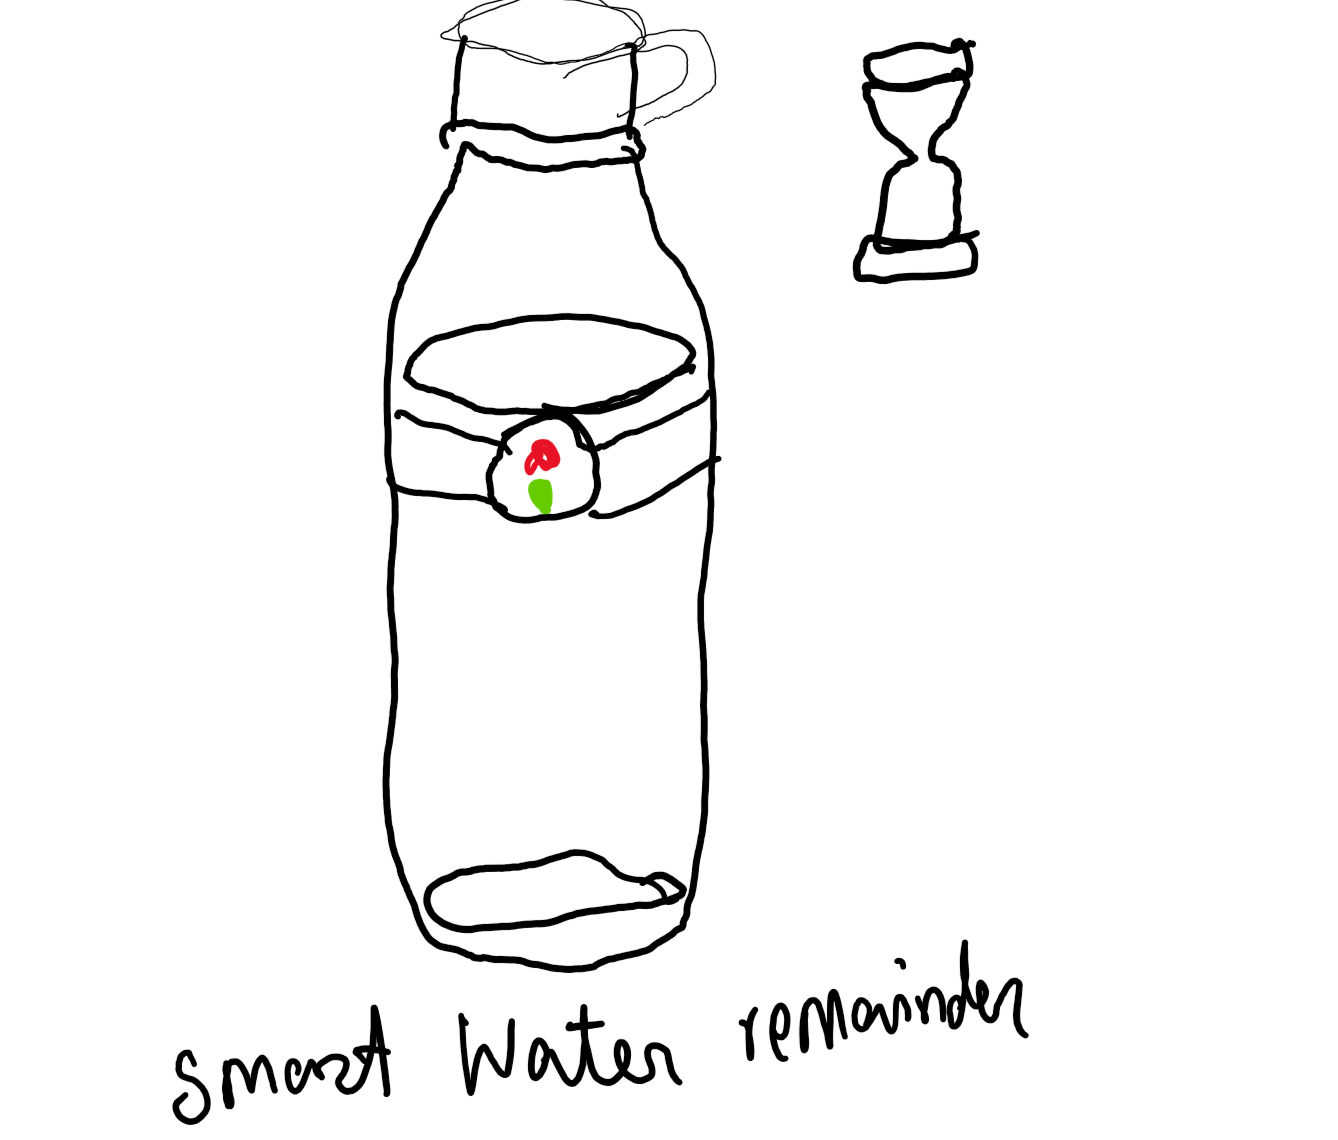 smart Water remainder